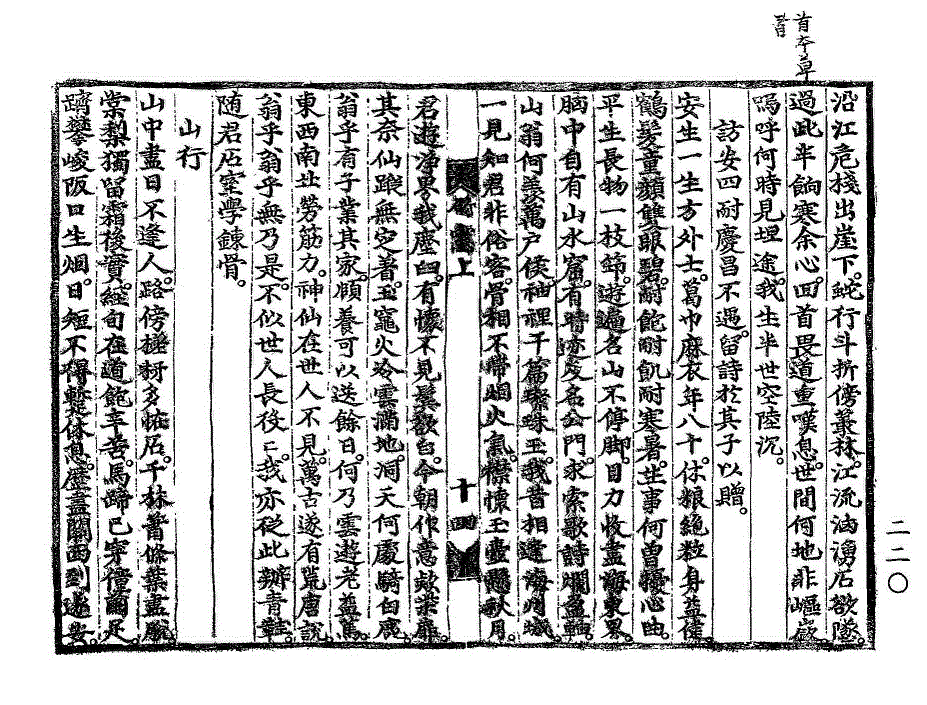 首本卓
沿江危棧出崖下。蛇行斗折傍叢林。江流洶湧石欲墜。
過此半餉寒余心。回首畏道重嘆息。世間何地非嶇嶔。
嗚呼何時見埋途。我生半世空陸沉。
訪安四耐慶昌不遇。留詩於其子以贈。
安生一生方外士。葛巾麻衣年八十。休粮絕數身益健
鶴髮童顏雙眼碧。耐飽耐飢耐寒暑。世事何曾擾心曲。
平生長物一枝笻。遊遍名山不停脚。目力收盡海東界。
胸中自有山水窟。有時亦及名公門。求索歌詩爛盈軸。
山翁何羨萬戶侯。袖裡千篇璨珠玉。我昔相逢海州城
一見知君非俗客。骨相不帶烟火氣。襟懷玉壺懸秋月。
上 十四
君遊淨界我塵臼。有懷不見鬢欲白。今朝作意款柴扉。
其奈仙蹤無定著。玉竈火冷雲滿地。洞天何處騎白鹿
翁乎有子業其家。願養可以送餘日。何乃雲遊老益篤
東西南北勞筋力。神仙在世人不見。萬古遂有荒唐說
翁乎翁乎無乃是。不似世人長役〻。我亦從此辦青鞋。
随君石室學鍊骨。
山行
山中盡日不逢人。路傍槎枒多恠石。千林蕭條葉盡脫
棠梨獨留霜後實。經旬在道飽辛苦。馬蹄已穿僮繭足
躋攀峻阪口生烟。日短不得暫休息。歷盡關西到遂安
二二〇